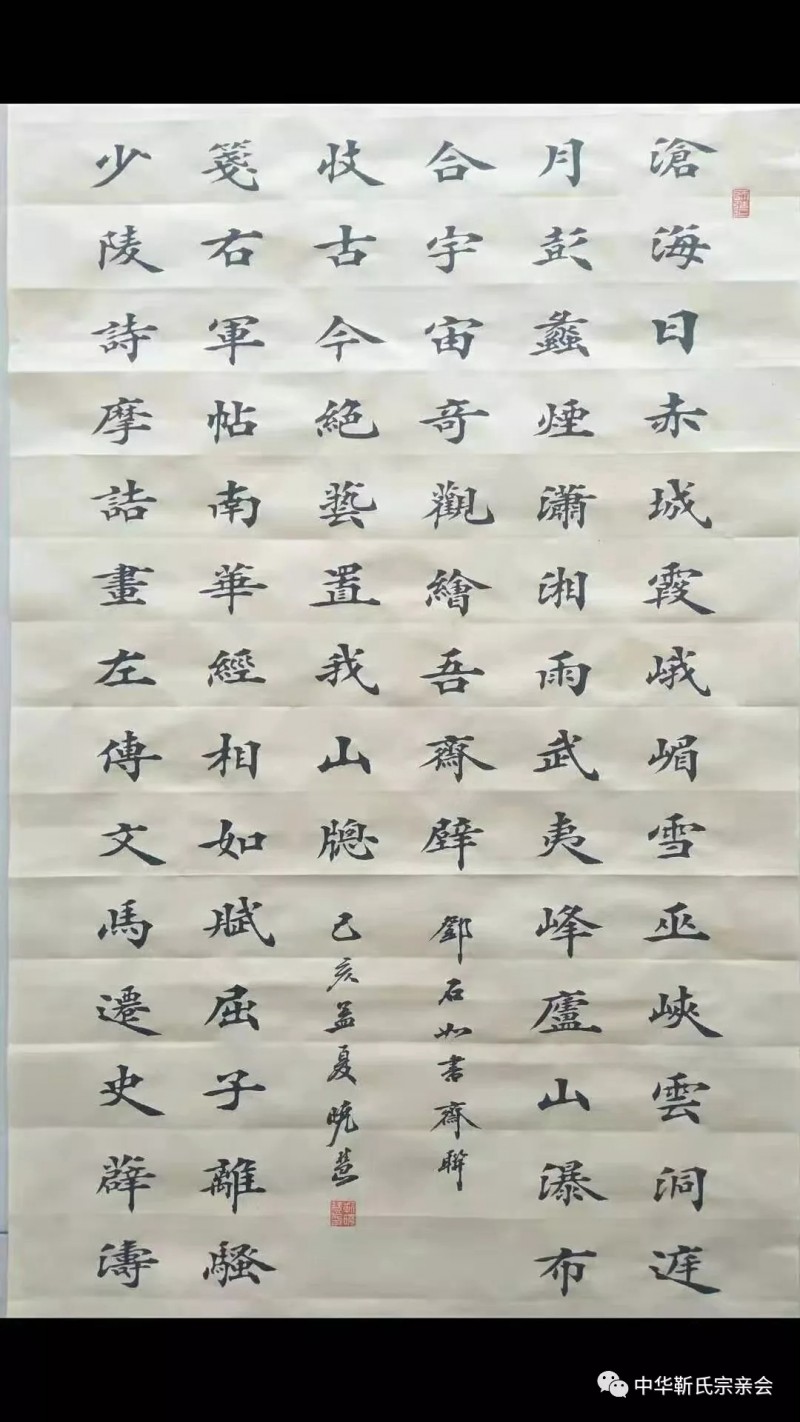 滄海日赤城霞峨嵋雪巫峽雲洞庭
月彭蠡煙瀟湘雨武夷峰廬山瀑布
合宇宙奇觀繪吾齋壁
鄧石如書齋聯
少陵詩摩詰畫左傳文馬遷史薛濤
箋右軍帖南華經相如賦屈子離騷
收古今絕藝置我山牕
己亥孟夏晓慧
中华靳氏宗亲会